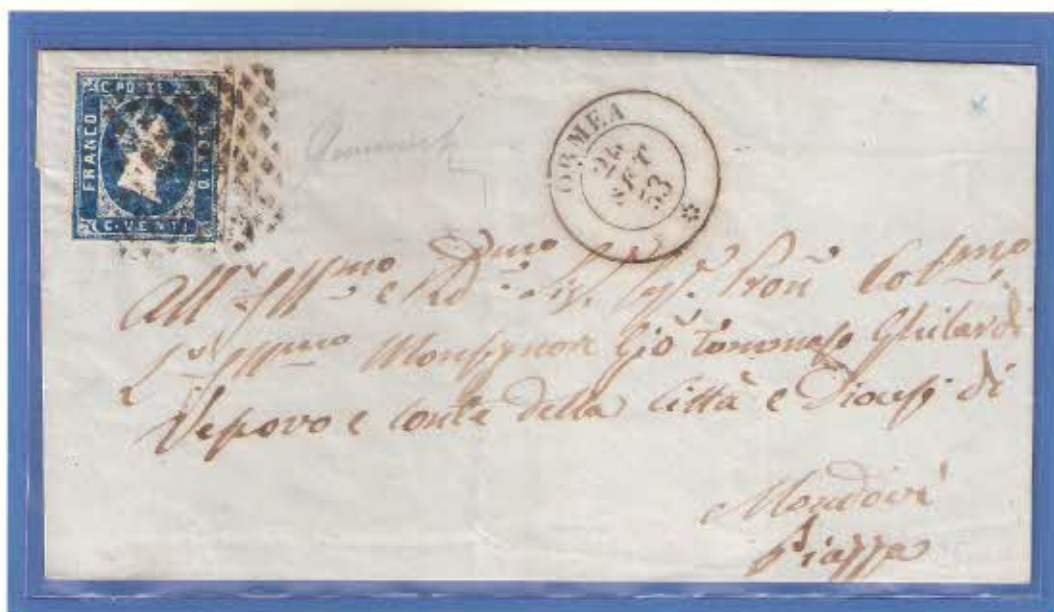 C. POSTE 20
FRANCO
BOLLO
C. VENTI
ORMEA
26
SET
53
All' Ill.mo e Rd.mo Sig. Sig. Pron Col.mo
Monsignor Gio Tommaso Ghilardi
Vescovo e Conte della Città e Diocesi di
Mondovì
Piazza